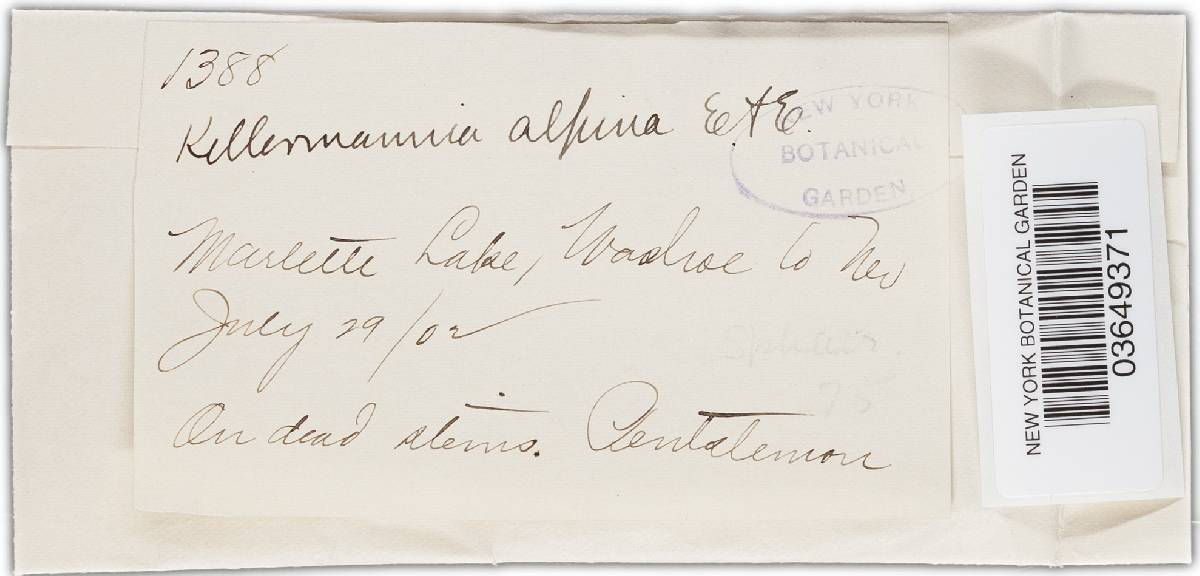 1388
Kellermannia alpina E & E.
NEW YORK
BOTANICAL
GARDEN
Marlette Lake, Washoe Co Nev
July 29/02
On dead stems. Pentstemon
NEW YORK BOTANICAL GARDEN
03649371